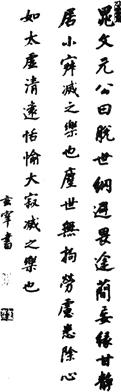 晁文元公曰脱世網避畏途蘭妄緣甘靜
居小寂滅之樂也塵世無拘勞慮悉除心
如太虛清遠恬愉大寂滅之樂也
玄宰書